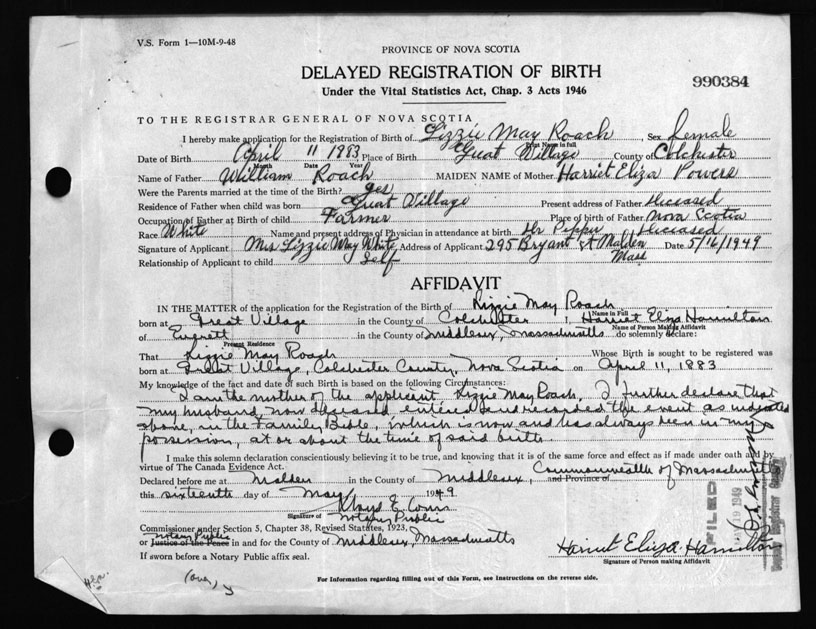 V.S. Form 1—10M-9-48
PROVINCE OF NOVA SCOTIA
DELAYED REGISTRATION OF BIRTH
990384
Under the Vital Statistics Act, Chap. 3 Acts 1946
TO THE REGISTRAR GENERAL OF NOVA SCOTIA
I hereby make application for the Registration of Birth of Lizzie May Roach, Sex female
Name in Full
Date of Birth April 11 1883, Place of Birth Great Village County of Colchester
Month Date Year
Name of Father William Roach MAIDEN NAME of Mother Harriet Eliza Powers
Were the Parents married at the time of the Birth? yes
Residence of Father when child was born Great Village Present address of Father Diceased
Occupation of Father at Birth of child Farmer Place of birth of Father Nova Scotia
Race White Name and present address of Physician in attendance at birth Dr Diceased
Signature of Applicant Mrs Lizzie May White Address of Applicant 295 Bryant St Malden Date 5/16/1949
Mass
Relationship of Applicant to child Self
AFFIDAVIT
IN THE MATTER of the application for the Registration of the Birth of Lizzie May Roach
Name in Full
born at Great Village in the County of Colchester, I Harriet Eliza Hamilton
Name of Person Making Affidavit
of Everett in the County of Middlesex, Massachusetts do solemnly declare:
Present Residence
That Lizzie May Roach Whose Birth is sought to be registered was
born at Great Village, Colchester County, Nova Scotia on April 11, 1883
My knowledge of the fact and date of such Birth is based on the following Circumstances:
I am the mother of the applicant Lizzie May Roach. I further declare that
my husband, now deceased entered and recorded the event as indicated
above, in the Family Bible, which is now and has always been in my
possession, at or about the time of said birth.
I make this solemn declaration conscientiously believing it to be true, and knowing that it is of the same force and effect as if made under oath and by
virtue of The Canada Evidence Act.
Commonwealth of Massachusetts
Declared before me at Malden in the County of Middlesex, and Province of
this sixteenth day of May 1949
Signature of
Notary Public
Commissioner under Section 5, Chapter 38, Revised Statutes, 1923,
Notary Public
or Justice of the Peace in and for the County of Middlesex, Massachusetts
If sworn before a Notary Public affix seal.
Harriet Eliza Hamilton
Signature of Person making Affidavit
(over)
For Information regarding filling out of this Form, see Instructions on the reverse side.
FILED
1949